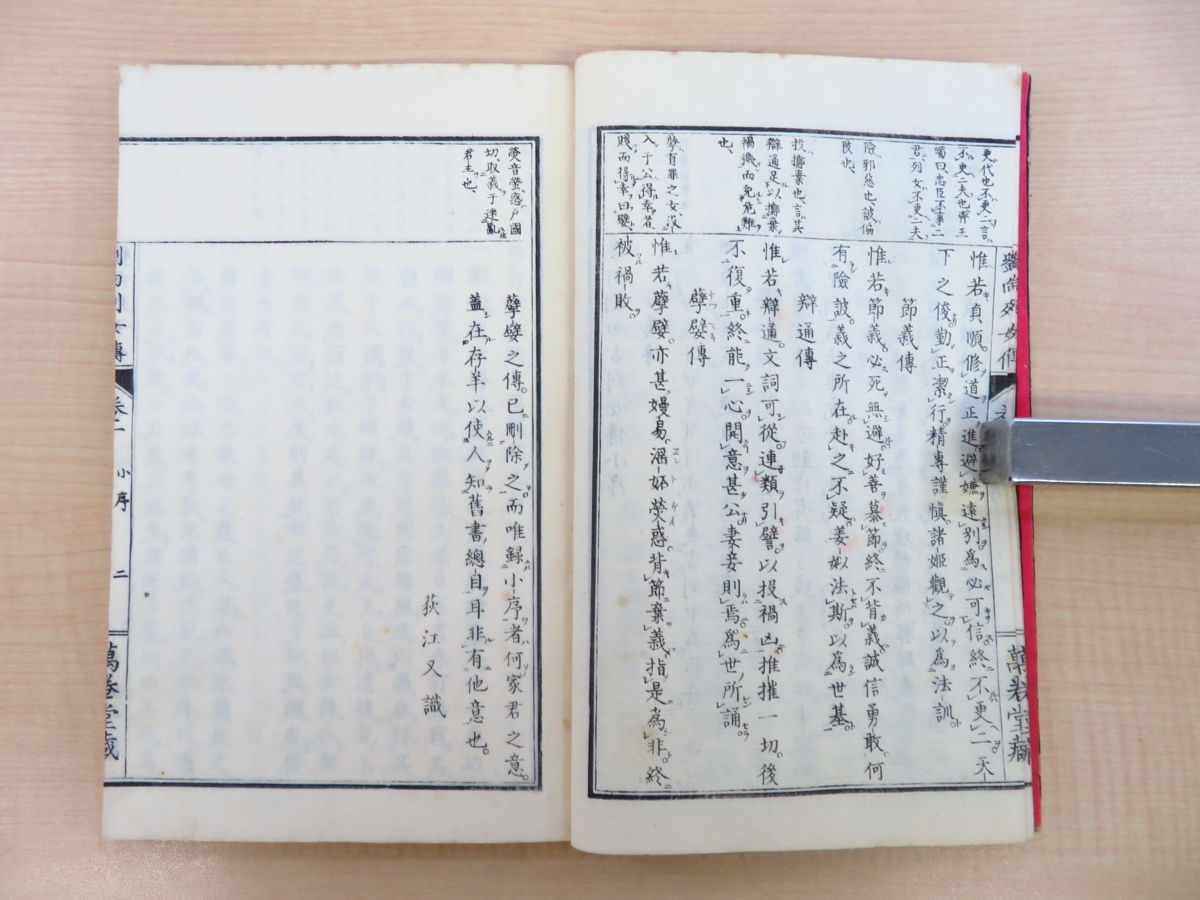 更代也不更二言
不更二夫也齊王
蠋曰忠臣不事二
君列女不更二夫
險邪惡也詖偏
陂也
投擲棄也言其
辯通足以擲棄
禍機而免危難
也
孽有罪之女沒
入于公得幸者
賤而得幸曰嬖
惟若貞順修道正進避嫌遠別為必可信終不更二天
下之俊勤正潔行精專謹慎諸姬觀之以為法訓
節義傳
惟若節義必死無避好善慕節終不背義誠信勇敢何
有險詖義之所在赴之不疑姜姒法斯以為世基
辯通傳
惟若辯通文詞可從連類引譬以投禍凶推摧一切後
不復重終能一心開意甚公妻妾則焉為世所誦
孽嬖傳
惟若孽嬖亦甚嫚易淫妬熒惑背節棄義指是為非終
被禍敗
劉向列女傳
萬卷堂藏
熒音螢惑戶國
切取義于迷亂
君主也
孽嬖之傳已刪除之而唯録小序者何家君之意
蓋在存羊以使人知舊書總目耳非有他意也
荻江又識
劉向列女傳 卷二 小序 二 萬卷堂藏